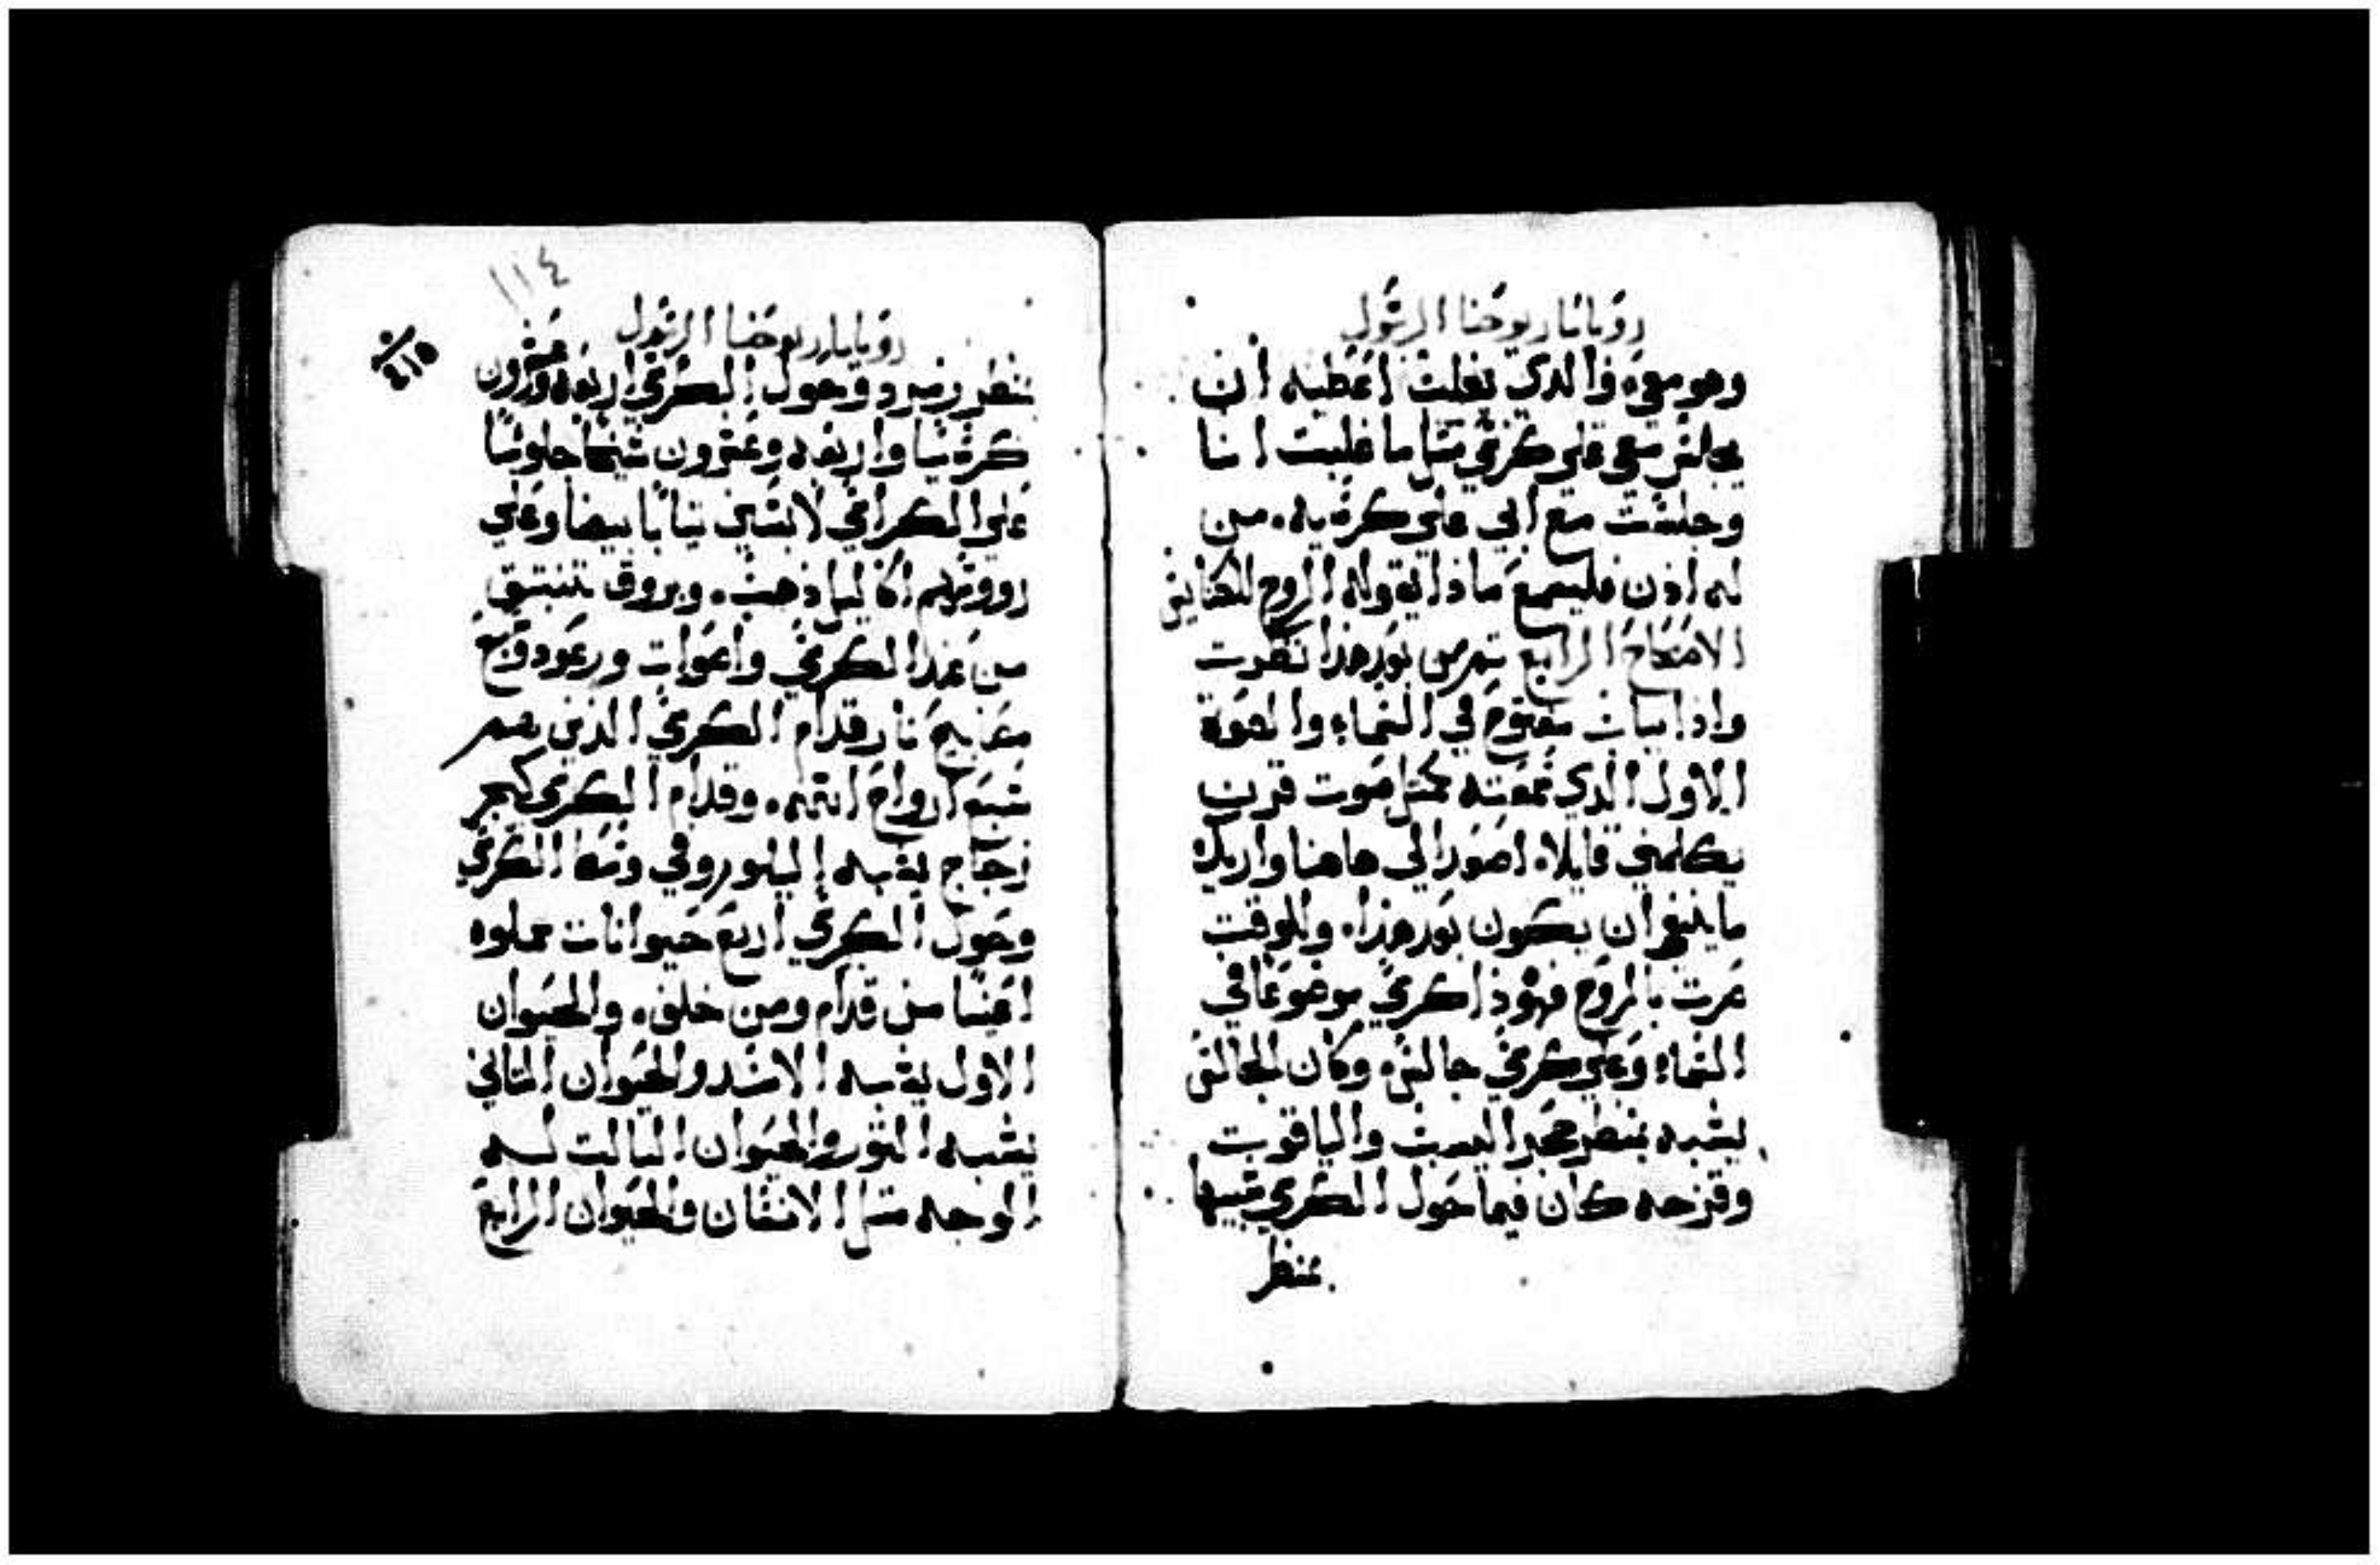 رويا مار يوحنا الرسول
وهو معي، والذي يغلب اعطيه ان
يجلس معي علي كرسي مثل ما غلبت انا
وجلست مع ابي علي كرسيه. من
له اذن فليسمع ماذا يقوله الروح للكنايس
الاصحاح الرابع ثم من بعد هذا نظرت
واذا بباب مفتوح في السماء والصوت
الاول الذي سمعته كمثل صوت قرن
يكلمني قايلا. اصعد الي هاهنا واريك
ما ينبغي ان يكون بعد هذا. وللوقت
صرت بالروح فهوذا كرسي موضوعا في
السماء وعلي كرسي جالس. وكان الجالس
يشبه بمنظر حجر اليصب والياقوت
وقزحه كان فيما حول الكرسي شبيها
بمنظر
١١٤
رويا مار يوحنا الرسول
بمنظر زمرد وحول الكرسي اربعه وعشرون
كرسيا واربعه وعشرون شيخا جلوسا
علي الكراسي لابسين ثيابا بيضا وعلي
رووسهم اكاليل ذهب. وبروق تنبثق
من عند الكرسي واصوات ورعود وسبع
مصابيح نار قدام الكرسي الذين هم
سبع ارواح الله. وقدام الكرسي كبحر
زجاج يشبه البلور وفي وسط الكرسي
وحول الكرسي اربع حيوانات مملوه
اعينا من قدام ومن خلف. والحيوان
الاول يشبه الاسد والحيوان الثاني
يشبه الثور والحيوان الثالث له
الوجه مثل الانسان والحيوان الرابع